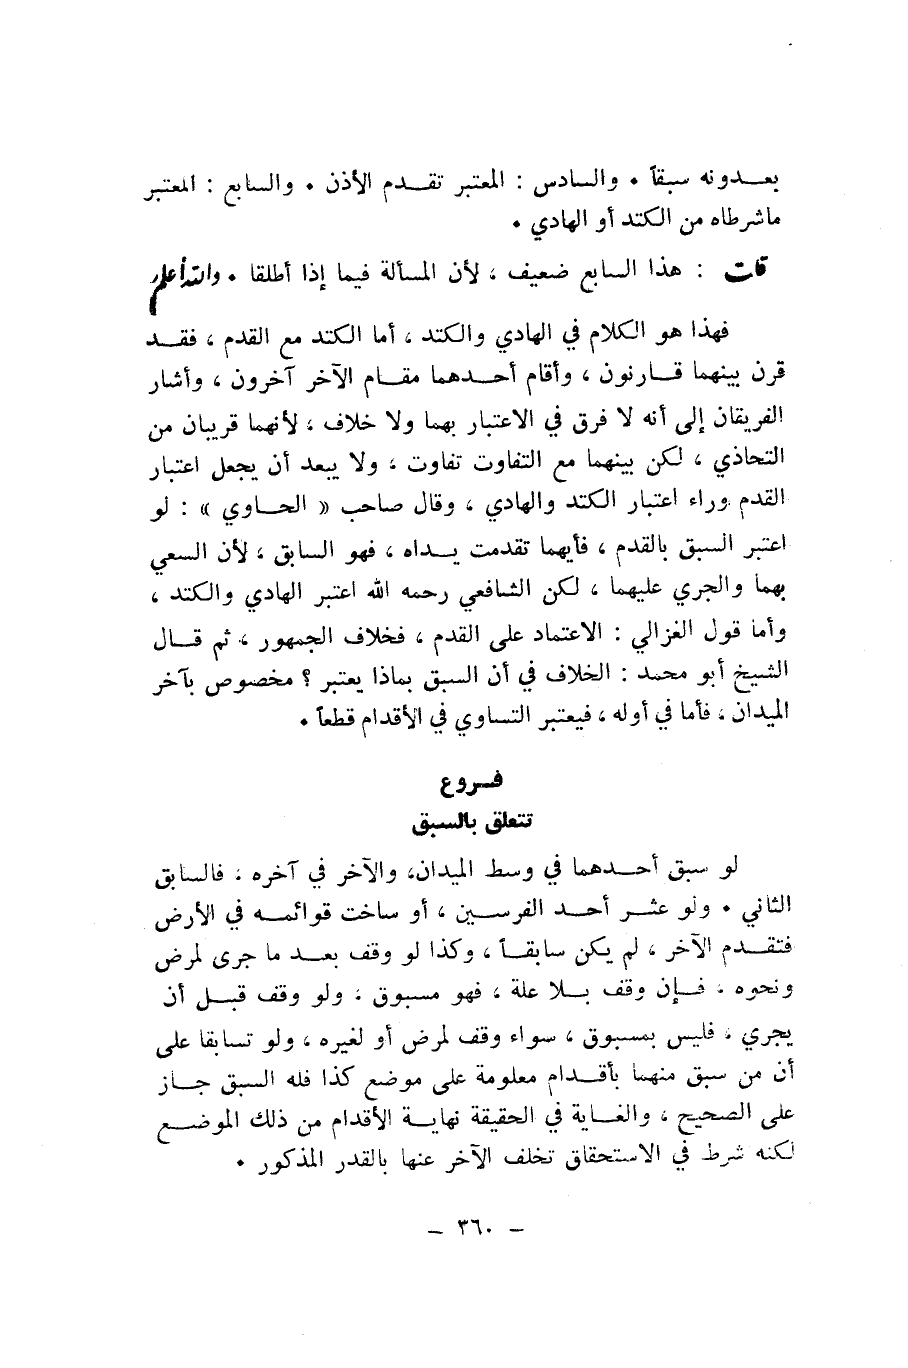 يعــدونه سبقاً • والسادس : المعتبر تقــدم الأذن • والسابع : المعتبر
ماشرطاه من الكتد أو الهادي •
قلت : هذا السابع ضعيف ، لأن المسألة فيما إذا أطلقا • والله أعلم
فهذا هو الكلام في الهادي والكتد ، أما الكتد مع القدم ، فقــد
قرن بينهما قــارنون ، وأقام أحــدهما مقــام الآخر آخرون ، وأشار
الفريقان إلى أنه لا فرق في الاعتبار بهما ولا خلاف ، لأنهما قريبان من
التحاذي ، لكن بينهما مع التفاوت تفاوت ، ولا يبعد أن يجعل اعتبار
القدم وراء اعتبار الكتد والهادي ، وقال صاحب « الحــاوي » : لو
اعتبر السبق بالقدم ، فأيهما تقدمت يــداه ، فهو السابق ، لأن السعي
بهما والجري عليهما ، لكن الشافعي رحمه الله اعتبر الهادي والكتد ،
وأما قول الغزالي : الاعتماد على القدم ، فخلاف الجمهور ، ثم قــال
الشيخ أبو محمد : الخلاف في أن السبق بماذا يعتبر ؟ مخصوص بآخر
الميدان ، فأما في أوله ، فيعتبر التساوي في الأقدام قطعاً •
فــروع
تتعلق بالسبق
لو سبق أحــدهما في وسط الميدان، والآخر في آخره ، فالسابق
الثاني • ولو عثــر أحــد الفرســين ، أو ساخت قوائمــه في الأرض
فتقــدم الآخر ، لم يكن سابقــاً ، وكذا لو وقف بعــد ما جرى لمرض
ونحوه ، فــإن وقف بــلا علة ، فهو مسبوق ، ولو وقف قبــل أن
يجري ، فليس بمسبوق ، سواء وقف لمرض أو لغيره ، ولو تسابقا على
أن من سبق منهما بأقــدام معلومة على موضع كذا فله السبق جــاز
على الصحيح ، والغــاية في الحقيقة نهايــة الأقدام من ذلك الموضــع
لكنه شرط في الاستحقاق تخلف الآخر عنها بالقدر المذكور •
– ٣٦٠ –